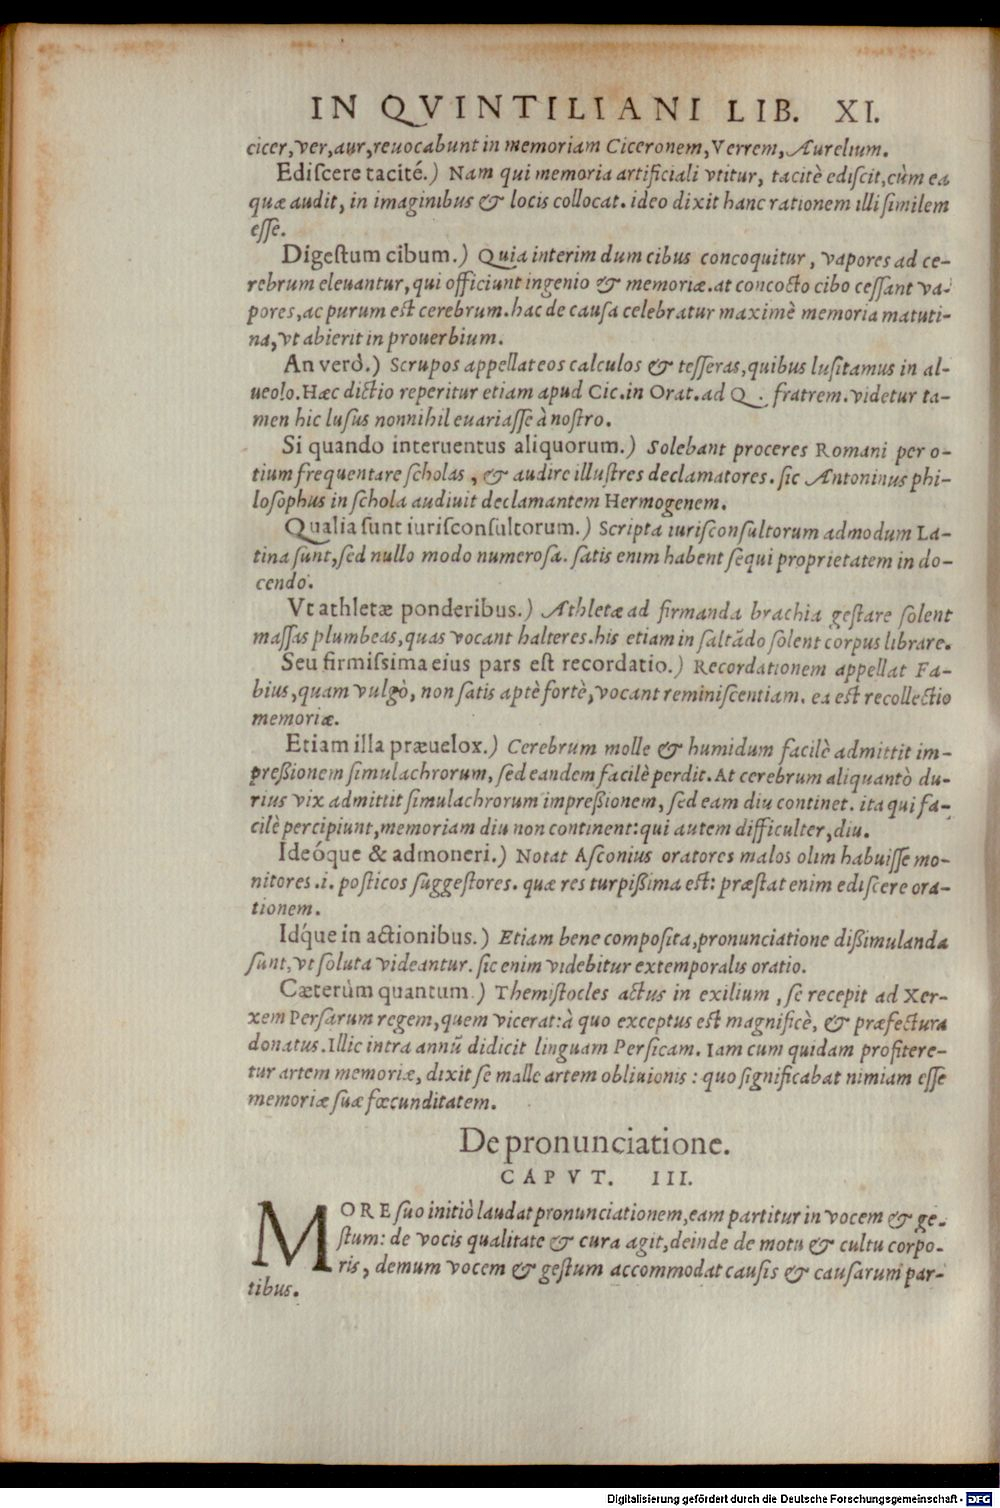 IN QVINTILIANI LIB. XI.
cicer, ver, aur, reuocabunt in memoriam Ciceronem, Verrem, Aurelium.
Ediſcere tacité.) Nam qui memoria artificiali vtitur, tacitè ediſcit, cùm ea
quæ audit, in imaginibus & locis collocat. ideo dixit hanc rationem illi ſimilem
eſſe.
Digeſtum cibum.) Quia interim dum cibus concoquitur, vapores ad ce-
rebrum eleuantur, qui officiunt ingenio & memoriæ. at concocto cibo ceſſant va-
pores, ac purum est cerebrum. hac de cauſa celebratur maximè memoria matuti-
na, vt abierit in prouerbium.
An verò.) Scrupos appellat eos calculos & teſſeras, quibus luſitamus in al-
ueolo. Hæc dictio reperitur etiam apud Cic. in Orat. ad Q. fratrem. videtur ta-
men hic luſus nonnihil euariaſſe à noſtro.
Si quando interuentus aliquorum.) Solebant proceres Romani per o-
tium frequentare ſcholas, & audire illuſtres declamatores. ſic Antoninus phi-
loſophus in ſchola audiuit declamantem Hermogenem.
Qualia ſunt iuriſconſultorum.) Scripta iuriſconſultorum admodum La-
tina ſunt, ſed nullo modo numeroſa. ſatis enim habent ſequi proprietatem in do-
cendo.
Vt athletæ ponderibus.) Athletæ ad firmanda brachia geſtare ſolent
maſſas plumbeas, quas vocant halteres. his etiam in ſaltãdo ſolent corpus librare.
Seu firmiſsima eius pars est recordatio.) Recordationem appellat Fa-
bius, quam vulgò, non ſatis aptè fortè, vocant reminiſcentiam. ea est recollectio
memoriæ.
Etiam illa præuelox.) Cerebrum molle & humidum facilè admittit im-
preßionem ſimulachrorum, ſed eandem facilè perdit. At cerebrum aliquantò du-
rius vix admittit ſimulachrorum impreßionem, ſed eam diu continet. ita qui fa-
cilè percipiunt, memoriam diu non continent: qui autem difficulter, diu.
Ideóque & admoneri.) Notat Aſconius oratores malos olim habuiſſe mo-
nitores .i. poſticos ſuggeſtores. quæ res turpißima est: præſtat enim ediſcere ora-
tionem.
Idq́ue in actionibus.) Etiam bene compoſita, pronunciatione dißimulanda
ſunt, vt ſoluta videantur. ſic enim videbitur extemporalis oratio.
Cæterùm quantum.) Themiſtocles actus in exilium, ſe recepit ad Xer-
xem Perſarum regem, quem vicerat: à quo exceptus est magnificè, & præfectura
donatus. Illic intra annũ didicit linguam Perſicam. Iam cum quidam profitere-
tur artem memoriæ, dixit ſe malle artem obliuionis: quo ſignificabat nimiam eſſe
memoriæ ſuæ fœcunditatem.
De pronunciatione.
CAPVT. III.
MORE ſuo initiò laudat pronunciationem, eam partitur in vocem & ge-
ſtum: de vocis qualitate & cura agit, deinde de motu & cultu corpo-
ris, demum vocem & geſtum accommodat cauſis & cauſarum par-
tibus.
Digitalisierung gefördert durch die Deutsche Forschungsgemeinschaft - DFG